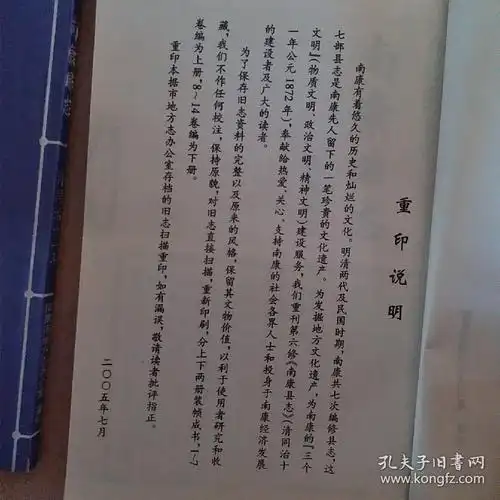 重印说明
南康有着悠久的历史和灿烂的文化。明清两代及民国时期，南康共七次编修县志，这
七部县志是南康先人留下的一笔珍贵的文化遗产。为发掘地方文化遗产，为南康的“三个
文明”(物质文明、政治文明、精神文明)建设服务，我们重刊第六修《南康县志》(清同治十
一年公元1872年)，奉献给热爱、关心、支持南康的社会各界人士和投身于南康经济发展
的建设者及广大的读者。
为了保存旧志资料的完整以及原来的风格，保留其文物价值，以利于使用者研究和收
藏，我们不作任何校注，保持原貌，对旧志直接扫描，重新印刷，分上下两册装帧成书，1—7
卷编为上册，8—14卷编为下册。
重印本据市地方志办公室存档的旧志扫描重印，如有漏误，敬请读者批评指正。
二〇〇五年七月
孔夫子旧书网
www.kongfz.com